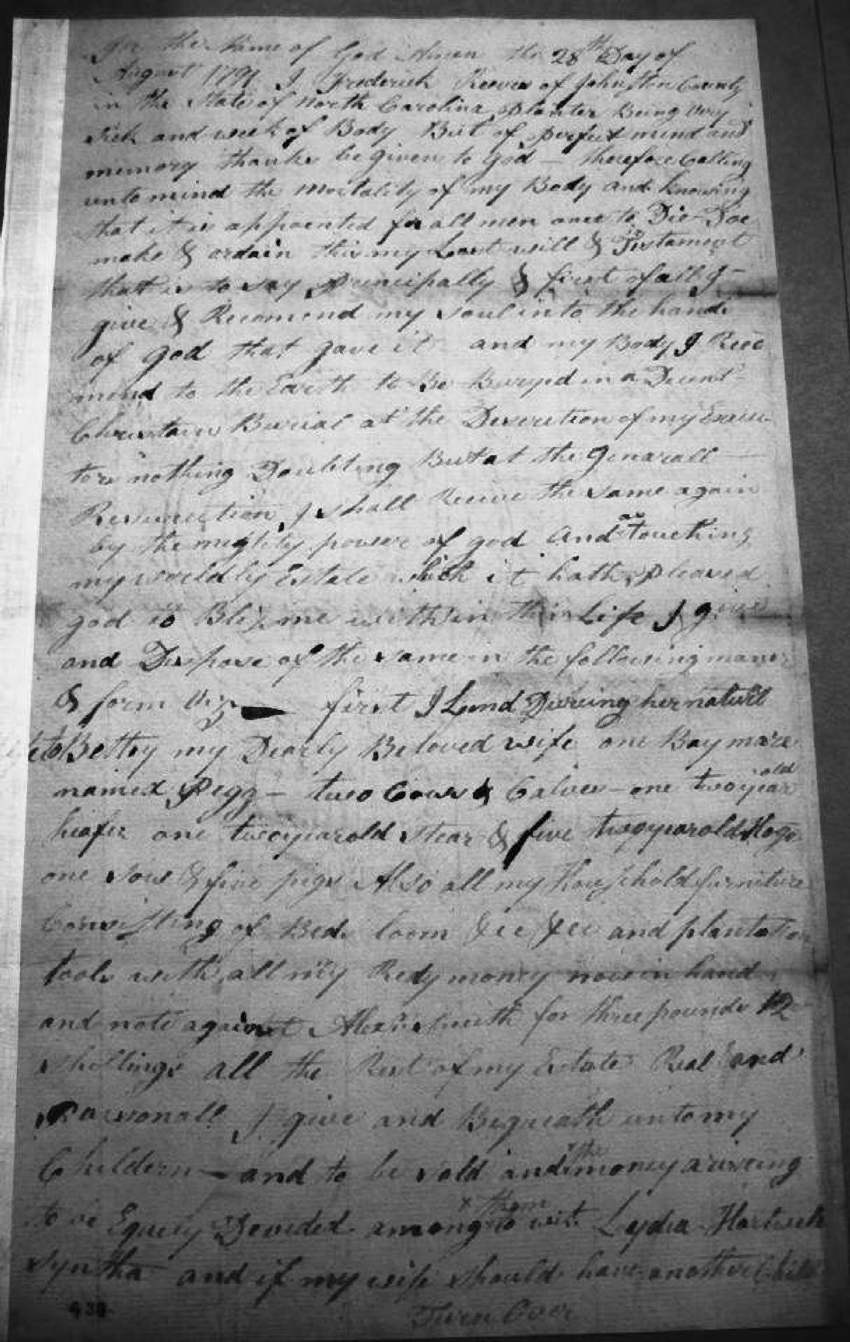 In the Name of God Amen the 28th Day of
August 1791 I Frederick Reeves of Johnston County
in the State of North Carolina planter Being Very
Sick and week of Body But of perfect mind and
memory thanks be given to God — therefore Calling
unto mind the mortality of my Body and knowing
that it is appointed for all men once to Die Doe
make & ordain this my Last will & Testament
that is to say principally & first of all I
give & Recomend my soul into the hands
of God that gave it and my Body I Reco
mend to the Earth to Be Buryed in a Decent
Christain Burial at the Discretion of my Execu
tors nothing Doubting But at the Generall
Resurrection I shall Receive the same again
by the mighty power of god And as touching
my worldly Estate which it hath pleased
god to Bless me with in this Life I give
and Dispose of the same in the following maner
& form Viz — first I Lend Dureing her naturl
Life to Bettey my Dearly Beloved wife one Bay mare
named Pegg — two Cows & Calves — one two year old
heafer one twoyearold stear & five twoyearold Hogs
one sow & five pigs Also all my houshold furniture
Consisting of Beds loom &c &c and plantation
tools with all my Redy money now in hand
and note against Alexr Smith for three pounds 12
shillings all the Rest of my Estate Real and
Parsonall I give and Bequeath unto my
Childern — and to be sold and the money ariseing
to be Equely Devided among them Lydia
Syntha and if my wife should have another Child
Turn Over